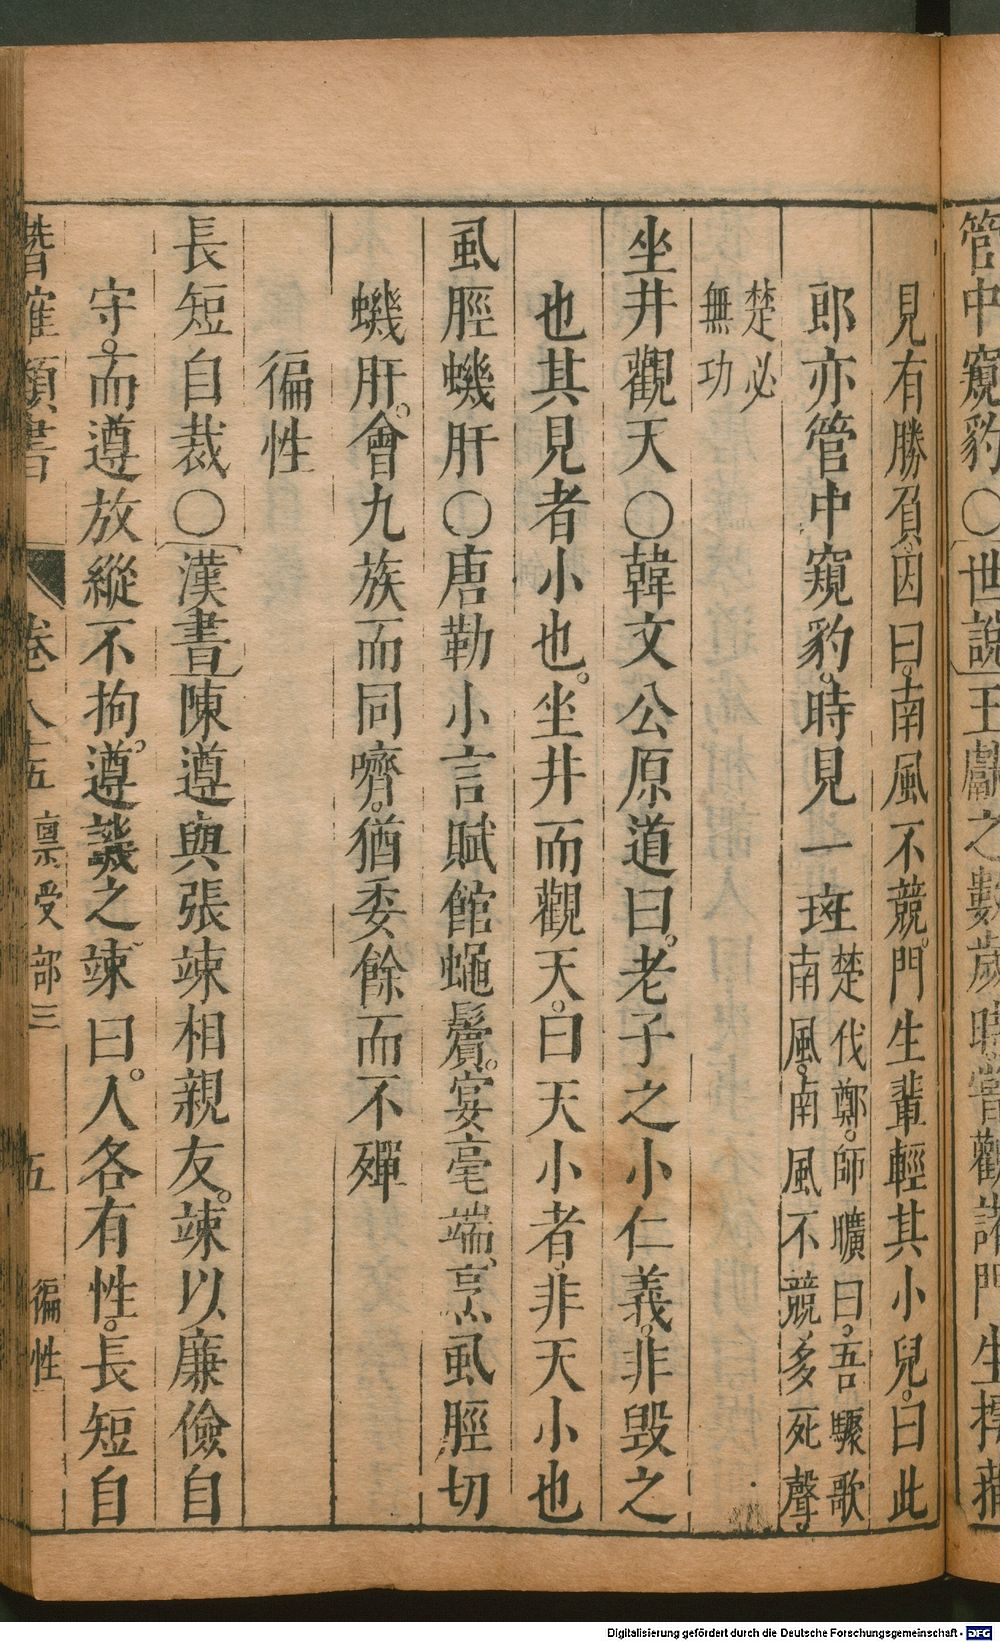 管中窺豹○世說王獻之數歲時嘗觀諸門生摴蒱
見有勝負因曰南風不競門生輩輕其小兒曰此
郎亦管中窺豹時見一斑楚伐鄭師曠曰吾驟歌
南風南風不競多死聲
楚必
無功
坐井觀天○韓文公原道曰老子之小仁義非毀之
也其見者小也坐井而觀天曰天小者非天小也
虱脛蟣肝○唐勒小言賦館蠅鬢宴毫端烹虱脛切
蟣肝會九族而同嚌猶委餘而不殫
徧性
長短自裁○漢書陳遵與張竦相親友竦以廉儉自
守而遵放縱不拘遵譏之竦曰人各有性長短自
類書 卷八十五 稟受部三 五 徧性
Digitalisierung gefördert durch die Deutsche Forschungsgemeinschaft - DFG